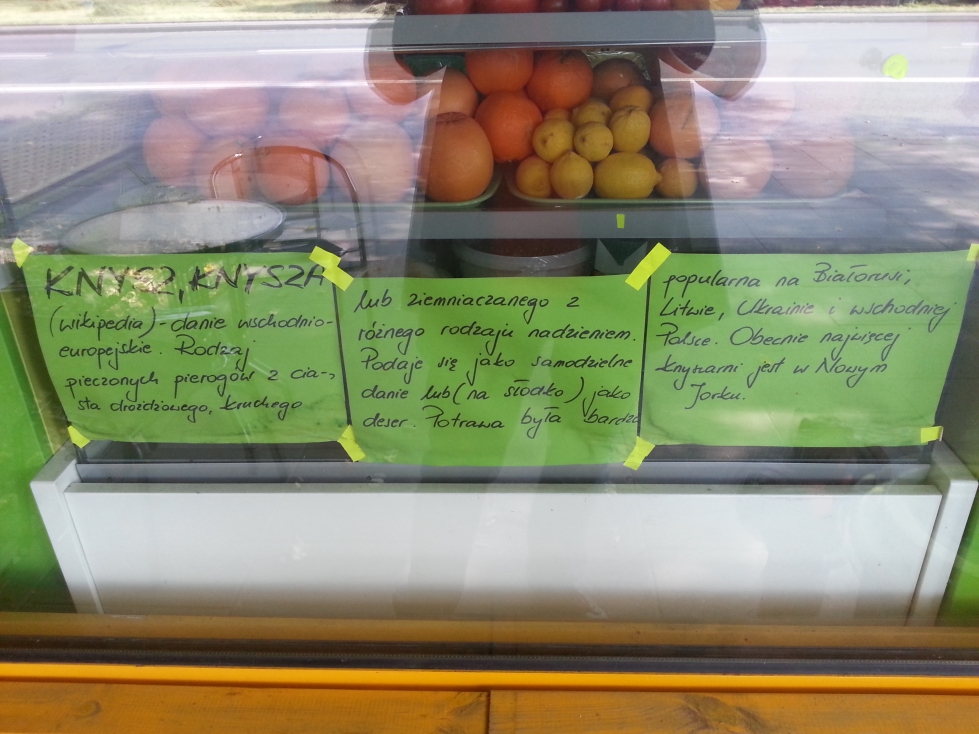 KNYSZ, KNYSZA
(wikipedia) - danie wschodnio-
europejskie. Rodzaj
pieczonych pierogów z cia-
sta drożdżowego, kruchego
lub ziemniaczanego z
różnego rodzaju nadzieniem.
Podaje się jako samodzielne
danie lub (na słodko) jako
deser. Potrawa była bardzo
popularna na Białorusi,
Litwie, Ukrainie i wschodniej
Polsce. Obecnie najwięcej
knyszarni jest w Nowym
Jorku.